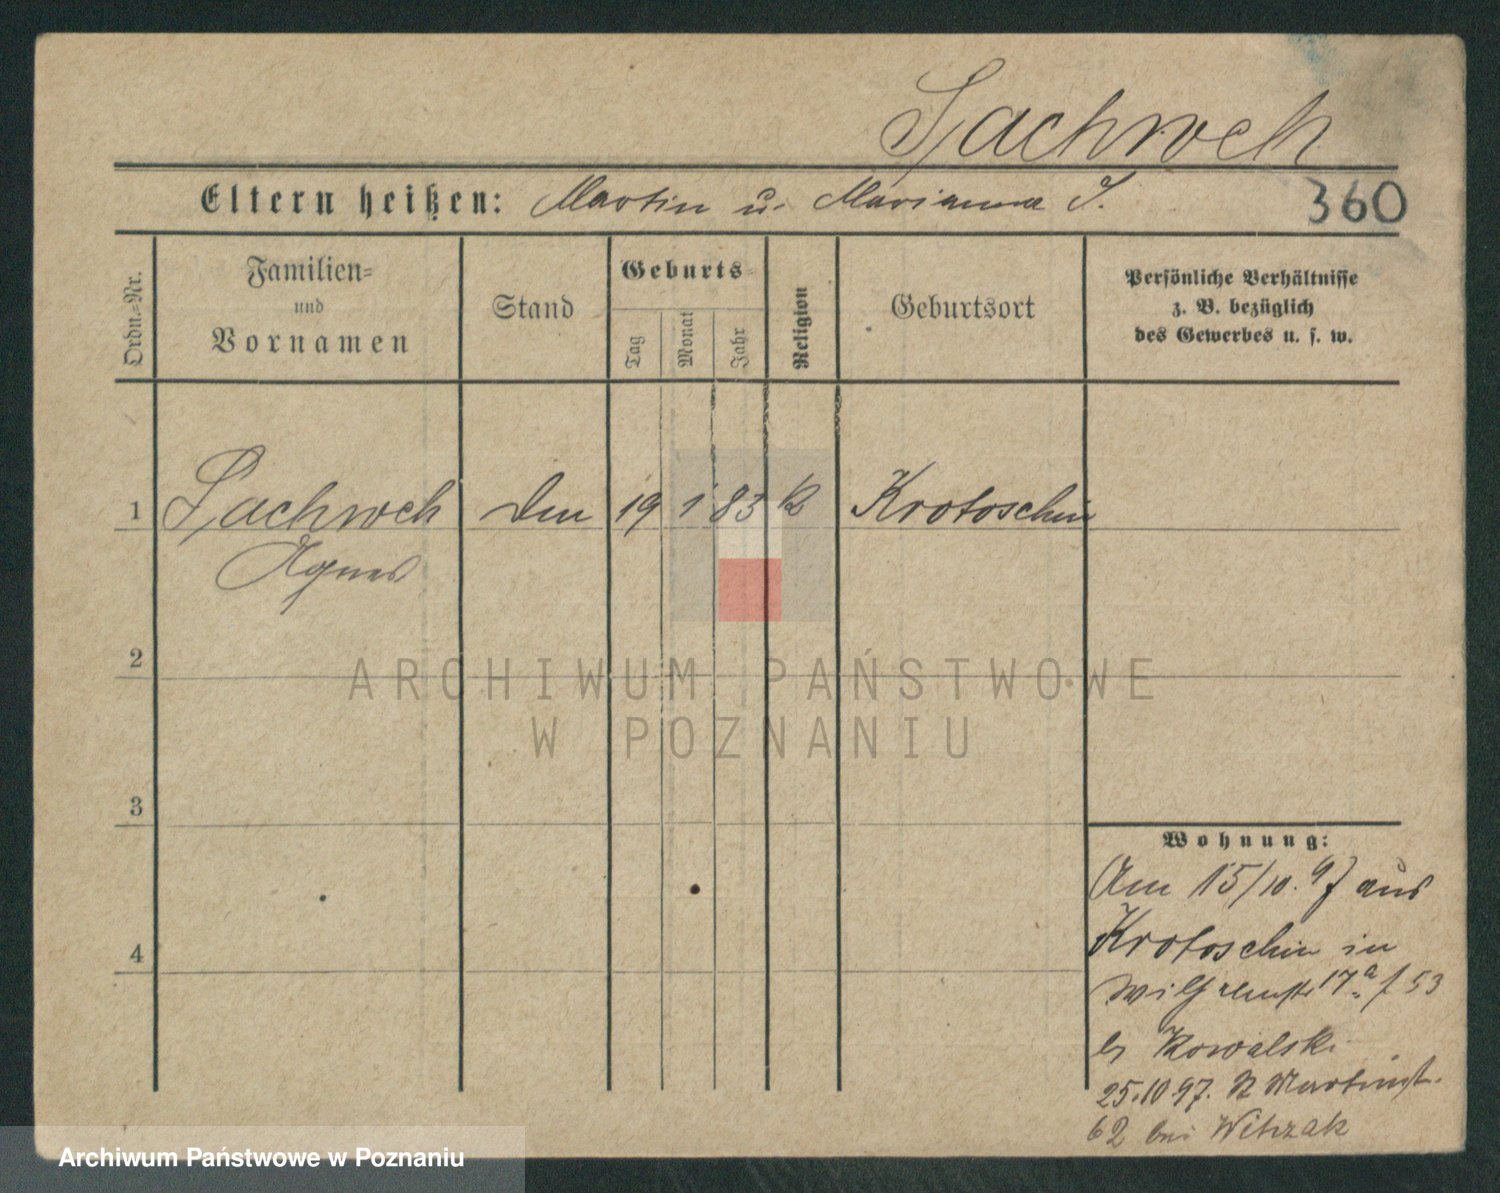 Sachweh
Eltern heißen: Martin u. Marianna S.
360
Ordn.-Nr.
Familien-
und
Vornamen
Stand
Geburts-
Tag
Monat
Jahr
Religion
Geburtsort
Persönliche Verhältnisse
z. B. bezüglich
des Gewerbes u. s. w.
1 Sachweh 19 1 83 k Krotoschin
Agnes
2
ARCHIWUM PAŃSTWOWE
W POZNANIU
3
4
Wohnung:
Am 15/10. 97 aus
Krotoschin in
17a 53
Kowalski
25.10 97. St Martinst.
62 bei Witzak
Archiwum Państwowe w Poznaniu